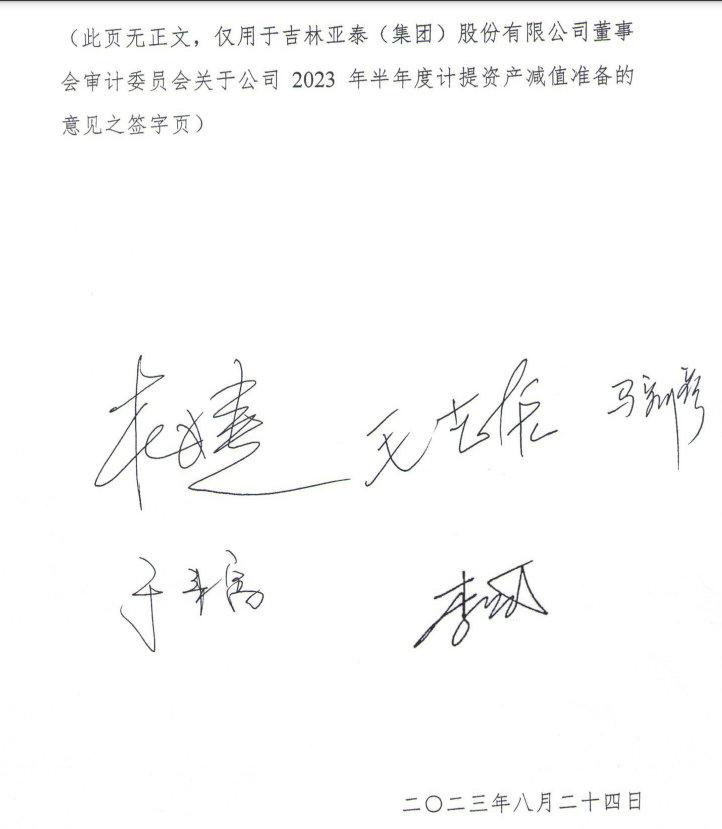 （此页无正文，仅用于吉林亚泰（集团）股份有限公司董事
会审计委员会关于公司 2023 年半年度计提资产减值准备的
意见之签字页）
毛志宏 马新彦
李
二〇二三年八月二十四日